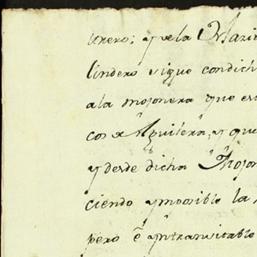 urero; y de la Mari
lindero sigue condich
ala mojonera que es
cos Aguilera, y qu
y desde dicha Mojon
ciendo ymposible la
pero é yntransitable